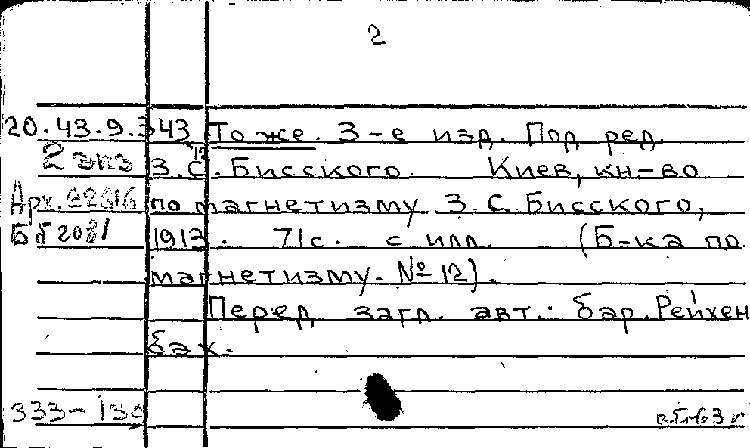 2
20.43.9.343 То же. 3-е изд. Под ред.
2 экз З.С. Бисского. Киев, кн-во
Арх. по магнетизму З.С. Бисского,
1913. 71с. с илл. (Б-ка по
магнетизму. №12).
Перед загл. авт.: бар. Рейхен
бах.